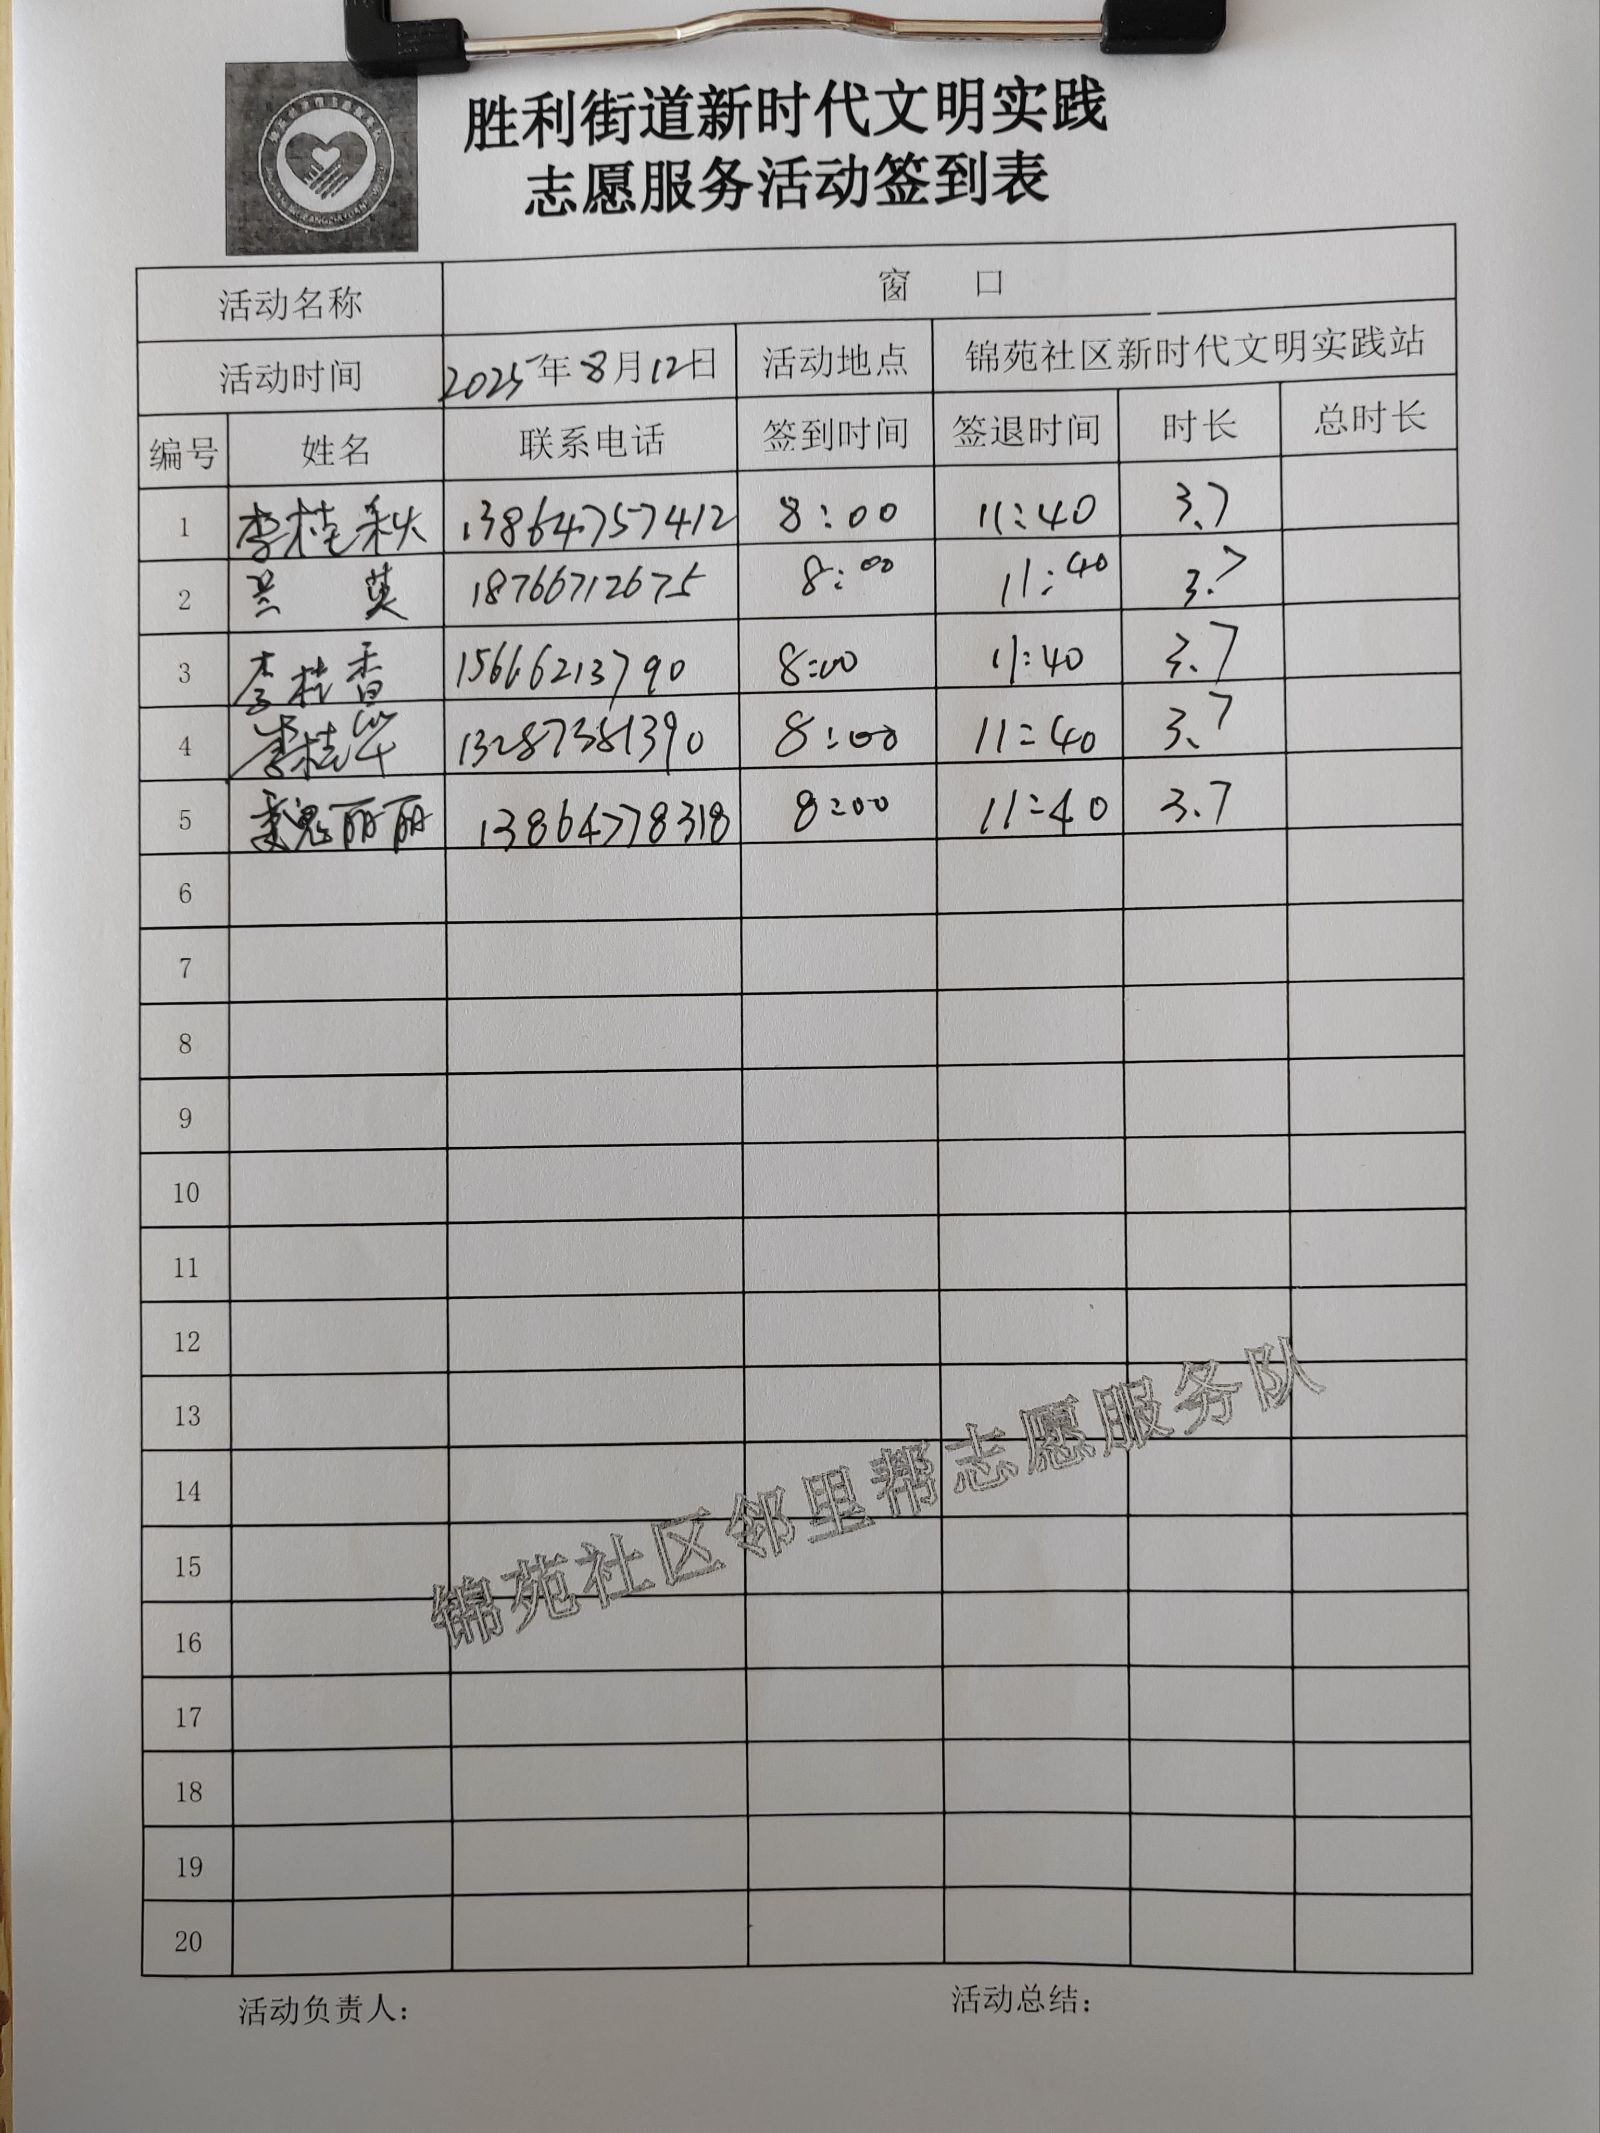 胜利街道新时代文明实践
志愿服务活动签到表
活动名称 窗 口
活动时间 2025年8月12日 活动地点 锦苑社区新时代文明实践站
编号 姓名 联系电话 签到时间 签退时间 时长 总时长
1 李桂秋 13864757412 8:00 11:40 3.7
2 兰英 18766712675 8:00 11:40 3.7
3 李桂香 15666213790 8:00 11:40 3.7
4 李桂华 13287381390 8:00 11:40 3.7
5 魏丽丽 13864778318 8:00 11:40 3.7
6
7
8
9
10
11
12
13
14
15
16
17
18
19
20
锦苑社区邻里帮志愿服务队
活动负责人: 活动总结: